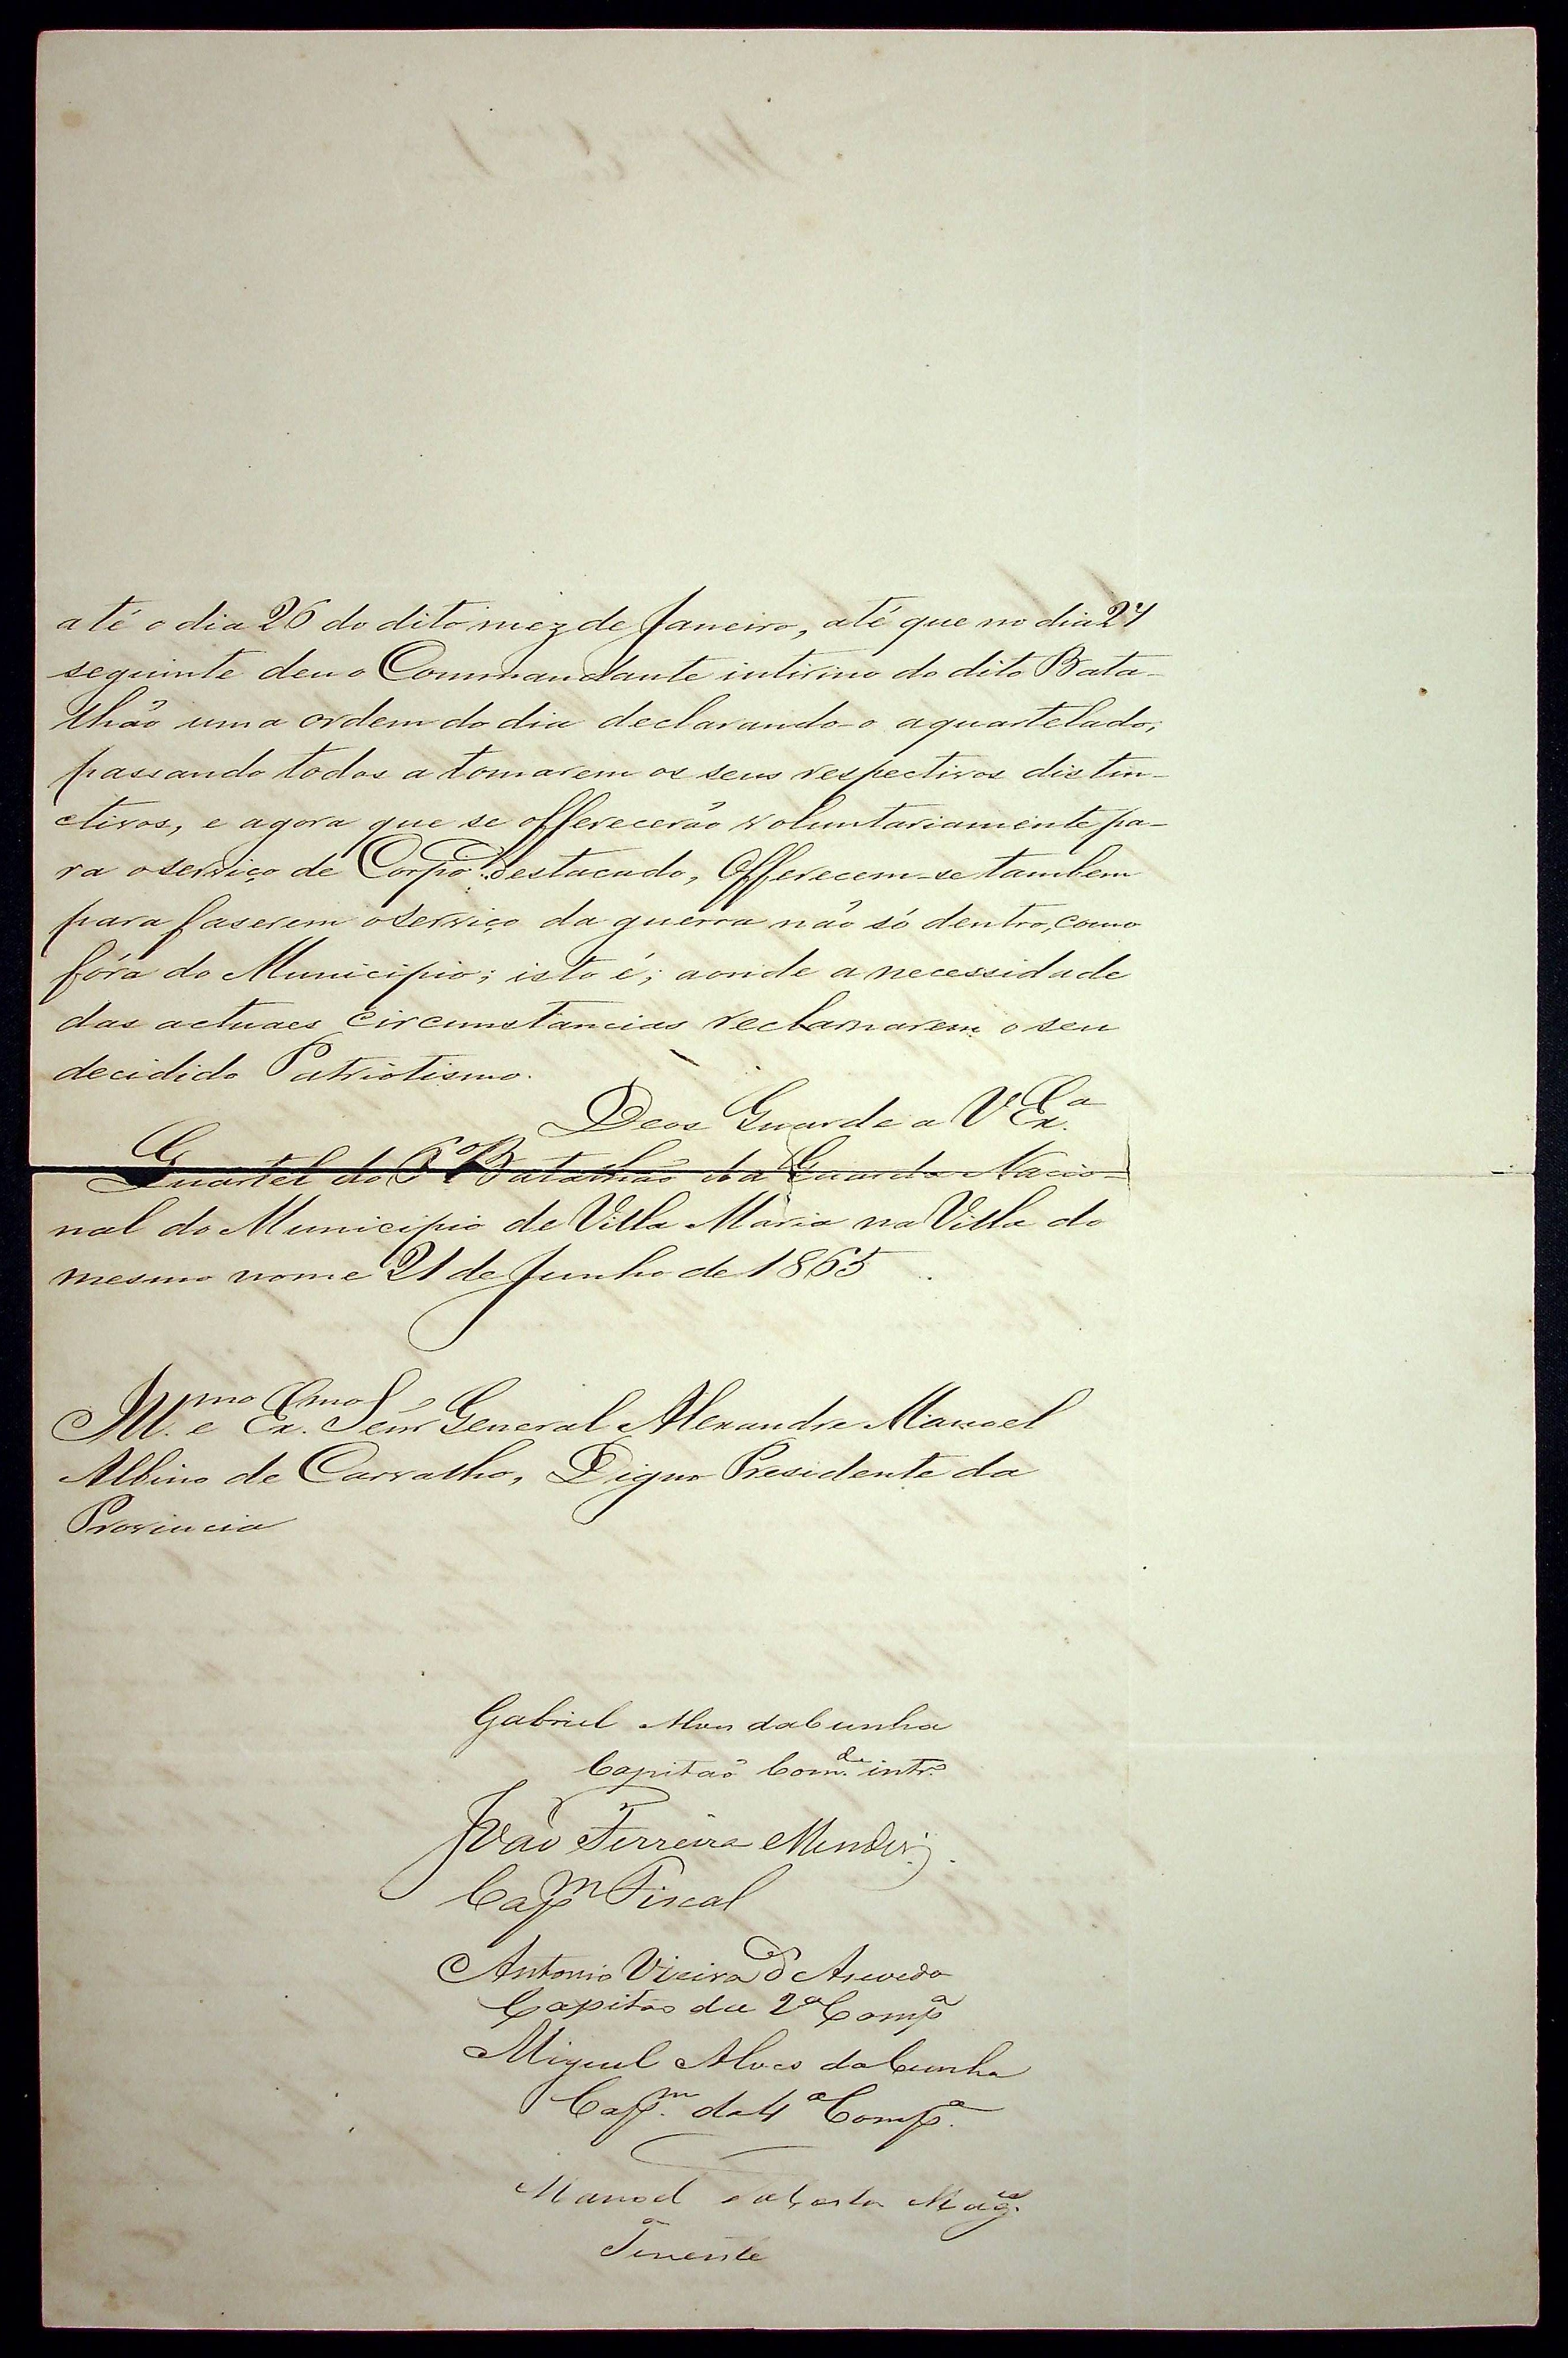 até o dia 26 do dito mez de Janeiro, até que no dia 27
seguinte deu o Commandante intirino do dito Bata-
lhão uma ordem do dia declarando-o aquartelado,
passando todos a tomarem os seus respectivos distin-
ctivos, e agora que se offerecerão voluntariamente pa-
ra o serviço de Corpo Destacado, Offerecem-se tambem
para faserem o serviço da guerra não só dentro, como
fóra do Municipio; isto é; aonde a necessidade
das actuaes circumstancias reclamarem o seu
decidido Patriotismo.
Deos Guarde a V Ex.ª
Quartel do Batalhão da Guarda Nacio-
nal do Municipio de Villa Maria na Villa do
mesmo nome 21 de Junho de 1865
Ill.mo e Ex.mo Senr General Alexandre Manoel
Albino de Carvalho, Digno Presidente da
Provincia
Gabriel Alves da Cunha
Capitaõ Com.de intr.o
João Ferreira Mendes
Capm Fiscal
Antonio Vieira d' Asevedo
Capitão da 2ª Compª
Miguel Alves da Cunha
Cap.m da 4ª Compª.
Manoel da Costa
Tenente